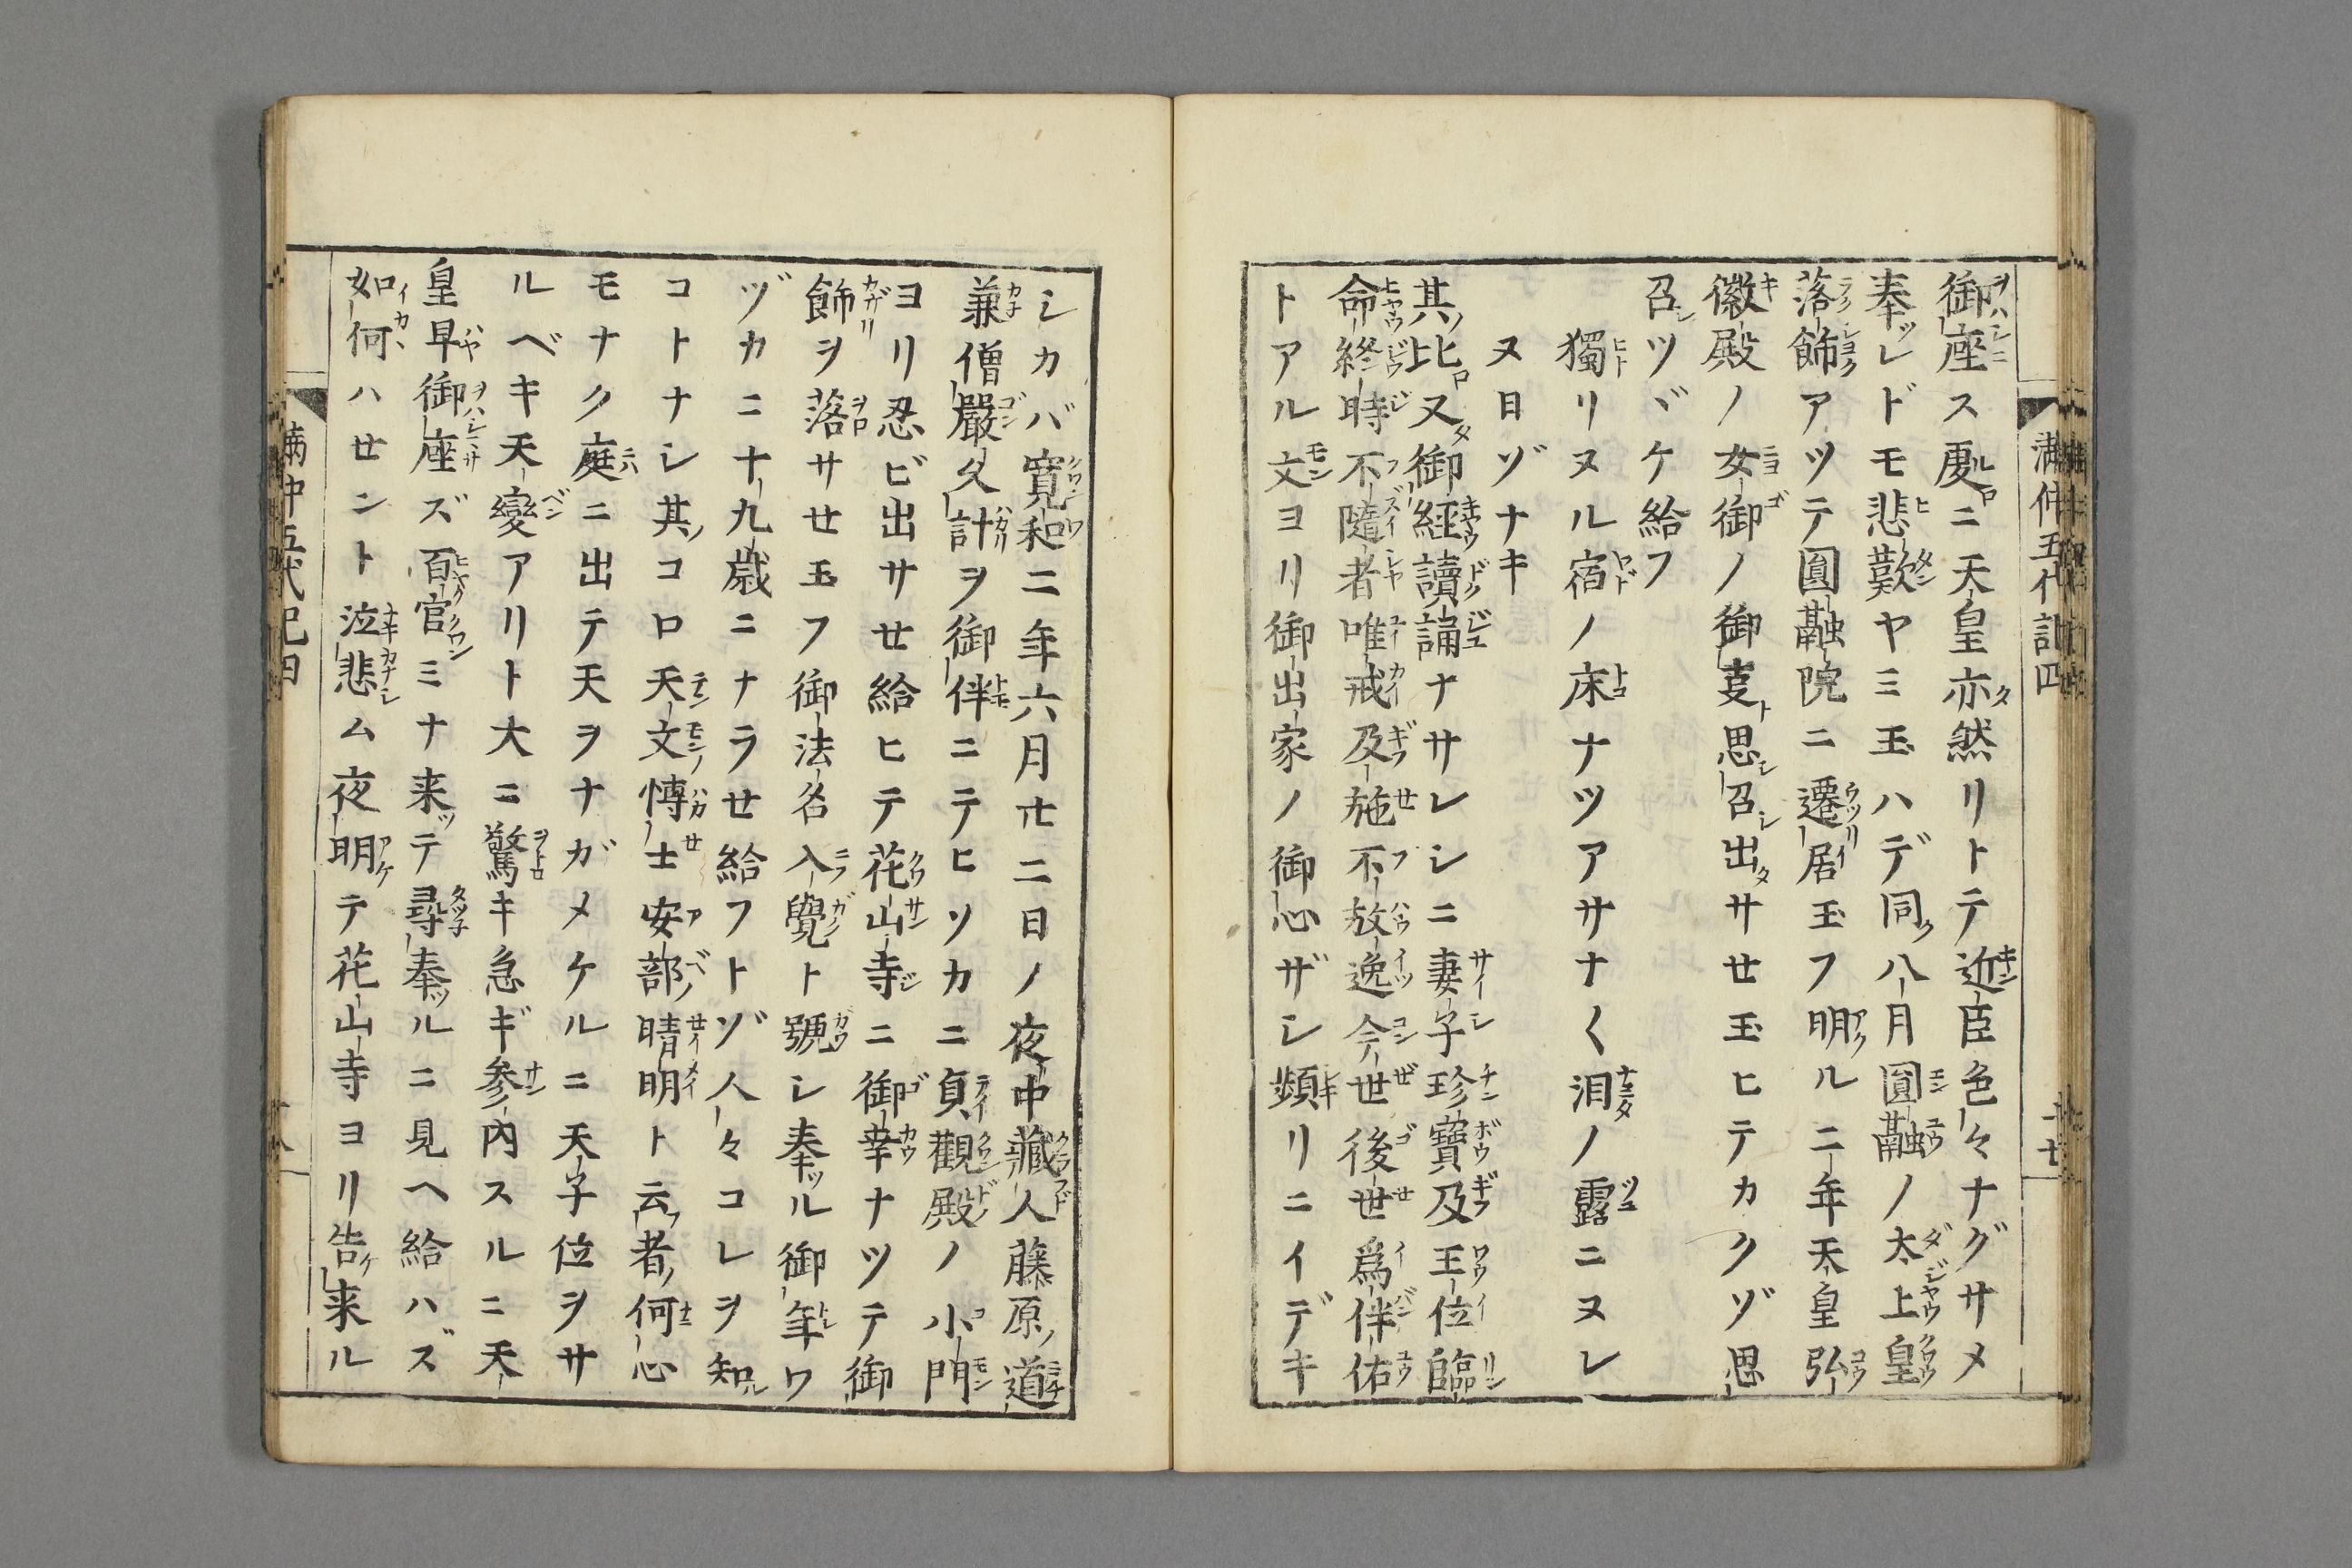 満仲五代記四
御座ス処ニ天皇亦然リトテ近臣色々ナグサメ
奉レドモ悲歎ヤミ玉ハデ同八月圓融ノ太上皇
落飾アツテ圓融院ニ遷居玉フ明ル二年天皇弘
徽殿ノ女御ノ御㕝思召出サセ玉ヒテカクゾ思
召ツヾケ給フ
獨リヌル宿ノ床ナツアサナ〱泪ノ露ニヌレ
ヌ日ゾナキ
其比又御経讀誦ナサレシニ妻子珍寶及王位臨
命終時不隨者唯戒及施不放逸今世後世爲伴佑
トアル文ヨリ御出家ノ御心ザシ頻リニイデキ
シカバ寛和二年六月廿二日ノ夜中藏人藤原道
兼僧嚴久計ヲ御伴ニテヒソカニ貞觀殿ノ小門
ヨリ忍ビ出サセ給ヒテ花山寺ニ御幸ナツテ御
飾ヲ落サセ玉フ御法名入覺ト號シ奉ル御年ワ
ヅカニ十九歳ニナラセ給フトゾ人々コレヲ知
コトナシ其コロ天文愽士安部晴明ト云者何心
モナク庭ニ出テ天ヲナガメケルニ天子位ヲサ
ルベキ天變アリト大ニ驚キ急ギ参内スルニ天
皇早御座ズ百官ミナ来テ尋奉ルニ見ヘ給ハズ
如何ハセント泣悲ム夜明テ花山寺ヨリ告来ル